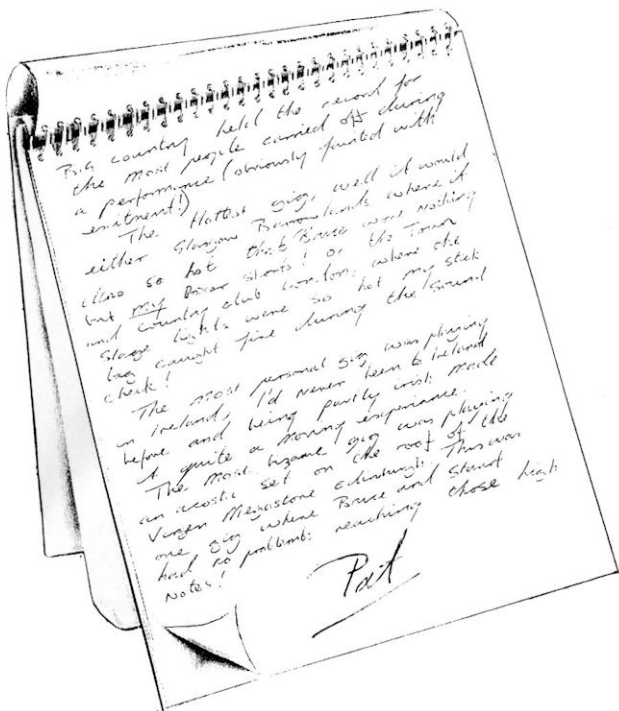 Big country held the record for
the most people carried off during
a performance (obviously fainted with
exitment!)
The Hottest gig, well it would
either Glasgow Barrowlands where it
was so hot that Bruce wore nothing
but my Boxer shorts! or the Town
and Country club London, where the
stage lights were so hot my stick
bag caught fire during the sound
check!
The most personal gig was playing
in Ireland, I'd never been to Ireland
before and being partly irish made
it quite a moving experience.
The most bizarre gig was playing
an acostic set on the roof of the
Virgin Megastore Edinburgh. This was
one gig where Bruce and Stuart
had no problems reaching those high
notes!
Pat